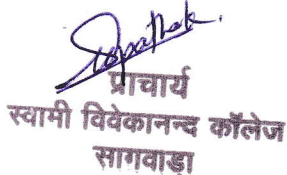 प्राचार्य
स्वामी विवेकानन्द कॉलेज
सागवाडा